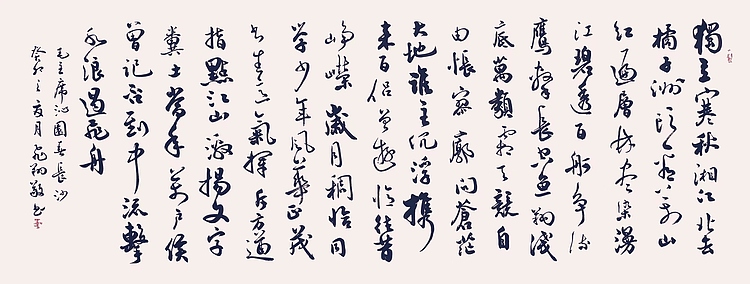 獨立寒秋湘江北去
橘子洲頭看萬山
紅遍層林盡染漫
江碧透百舸爭流
鷹擊長空魚翔淺
底萬類霜天競自
由悵寥廓問蒼茫
大地誰主沉浮攜
來百侶曾遊憶往昔
崢嶸歲月稠恰同
學少年風華正茂
書生意氣揮斥方遒
指點江山激揚文字
糞土當年萬戶侯
曾記否到中流擊
水浪遏飛舟
毛主席沁園春長沙
癸卯之夏月飛翔敬書